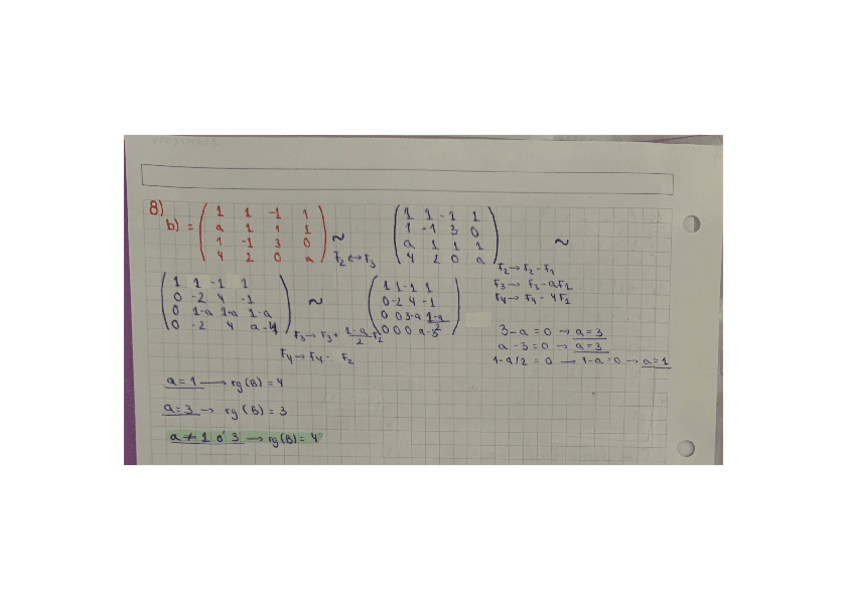 8)
b) = ( 1 1 -1 1
a 1 1 1
1 -1 3 0
4 2 0 a ) ~
F2 ↔ F3
( 1 1 -1 1
1 -1 3 0
a 1 1 1
4 2 0 a ) ~
F2 → F2 - F1
F3 → F3 - aF1
F4 → F4 - 4F1
( 1 1 -1 1
0 -2 4 -1
0 1-a 1+a 1-a
0 -2 4 a-4 ) ~
F3 → F3 + (1-a)/2 F2
F4 → F4 - F2
( 1 1 -1 1
0 -2 4 -1
0 0 3-a (1-a)/2
0 0 0 a-3 )
3-a = 0 → a=3
a-3 = 0 → a=3
1-a/2 = 0 → 1-a=0 → a=1
a=1 → rg(B) = 4
a=3 → rg(B) = 3
a≠1 ó 3 → rg(B) = 4